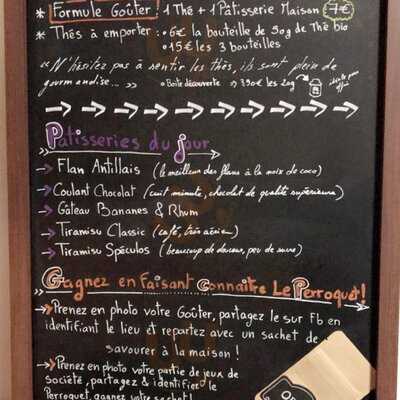 * Formule Goûter : 1 Thé + 1 Pâtisserie Maison 7€
* Thés à emporter : • 6€ la bouteille de 50g de Thé bio
• 15€ les 3 bouteilles
"N'hésitez pas à sentir les thés, ils sont plein de
gourmandise..." • Boite découverte → 3€50 les 20g
Pâtisseries du jour
→ Flan Antillais (le meilleur des flans à la noix de coco)
→ Coulant Chocolat (cuit minute, chocolat de qualité supérieure)
→ Gâteau Bananes & Rhum
→ Tiramisu Classic (café, très aérien)
→ Tiramisu Spéculos (beaucoup de douceur, peu de sucre)
Gagnez en Faisant Connaître Le Perroquet!
→ Prenez en photo votre Goûter, partagez le sur Fb en
identifiant le lieu et repartez avec un sachet de
savourer à la maison !
→ Prenez en photo votre partie de jeux de
société, partagez & identifiez le
Perroquet, gagnez votre sachet!